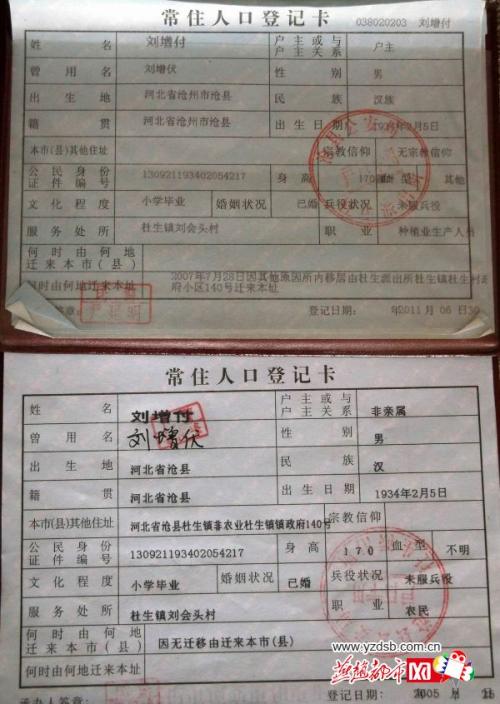 常住人口登记卡
038020203 刘增付
姓名 刘增付 户主或与户主关系 户主
曾用名 刘增伏 性别 男
出生地 河北省沧州市沧县 民族 汉族
籍贯 河北省沧州市沧县 出生日期 1934年2月5日
本市(县)其他住址 宗教信仰 无宗教信仰
公民身份证件编号 130921193402054217 身高 170 血型 其他
文化程度 小学毕业 婚姻状况 已婚 兵役状况 未服兵役
服务处所 杜生镇刘会头村 职业 种植业生产人员
何时由何地迁来本市(县)
何时由何地迁来本址 2007年7月28日因其他原因所内移居由杜生派出所杜生镇杜生村政府小区140号迁来本址
登记日期: 年2011月06日30
常住人口登记卡
姓名 刘增付 户主或与户主关系 非亲属
曾用名 刘增伏 性别 男
出生地 河北省沧县 民族 汉
籍贯 河北省沧县 出生日期 1934年2月5日
本市(县)其他住址 河北省沧县杜生镇非农业杜生镇镇政府140号 宗教信仰
公民身份证件编号 130921193402054217 身高 170 血型 不明
文化程度 小学毕业 婚姻状况 已婚 兵役状况 未服兵役
服务处所 杜生镇刘会头村 职业 农民
何时由何地迁来本市(县) 因无迁移由迁来本市(县)
何时由何地迁来本址
承办人签章: 登记日期: 2005年
www.yzdsb.com.cn
燕赵都市网